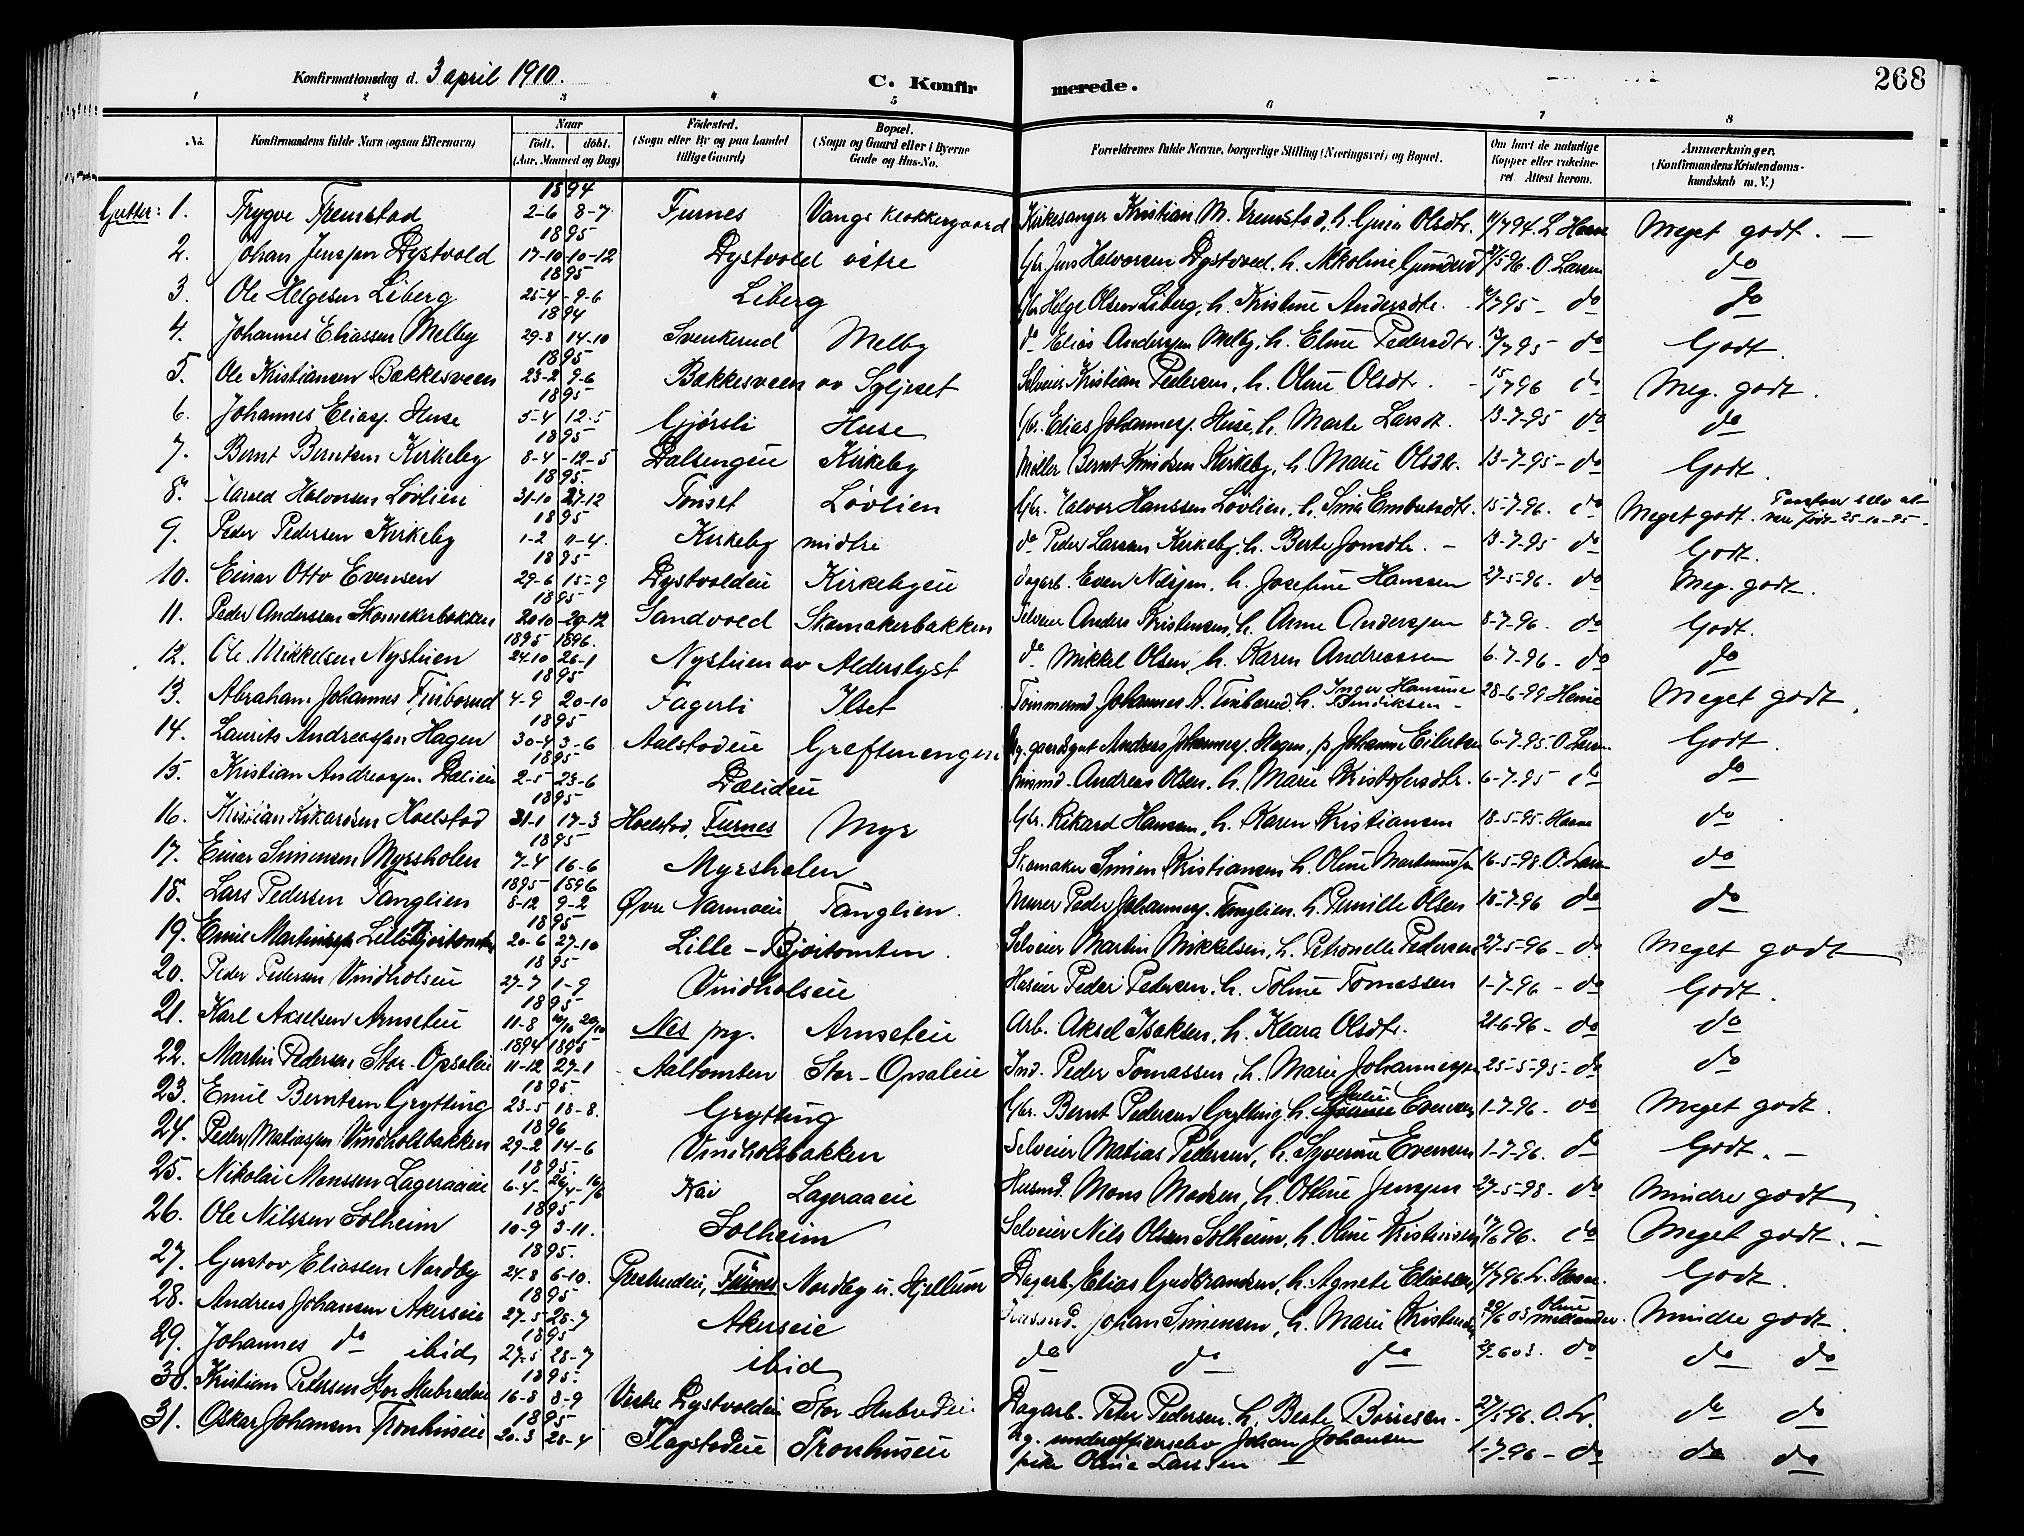 Konfirmationsdag d. 3 april 1910.
C. Konfirmerede.
268
1 2 3 4 5 6 7 8
No. Konfirmandens fulde Navn (ogsaa Efternavn) Naar födt. döbt. (Aar, Maaned og Dag) Födested. (Sogn eller By og paa Landet tillige Gaard) Bopæl. (Sogn og Gaard eller i Byerne Gade og Hus-No. Forældrenes fulde Navne, borgerlige Stilling (Næringsvei) og Bopæl. Om havt de naturlige Kopper eller vakcineret. Attest herom. Anmærkninger. (Konfirmandens Kristendomskundskab m. V.)
1894
Gutter: 1. Trygve Fremstad 2-6 8-7 Furnes Vangs klokkergaard Kirkesanger Kristian M. Fremstad, h. Guria Olsdtr. 11/7 94. Meget godt. —
1895
2. Johan Jenssen Dystvold 17-10 10-12 Dystvold østre Gbr. Jens Halvorsen Dystvold, h. O. Larsen do
1895
3. Ole Helgesen Liberg 25-4 9-6 Liberg Gbr. Helge Olsen Liberg, h. Kristine Andersdtr. do do
1894
4. Johannes Eliassen Melby 29-8 14-10 Svenkerud Melby do Elias Anderssen Melby, h. Eline Pedersdtr. do Godt.
1895
5. Ole Kristiansen Bakkesveen 23-2 9-6 Bakkesveen av Syljeset Selveier Kristian Pedersen, h. Oline Olsdtr. do Meg. godt.
1895
6. Johannes Eliass. Huse 5-4 12-5 Gjørsli Huse Gbr. Elias Johanness. Huse, h. Marte Larsdt. 13-7-95 do do
1895
7. Bernt Berntsen Kirkeby 8-4 12-5 Dalsengen Kirkeby Møller Bernt Knudsen Kirkeby, h. Marie Olsdtr. 13-7-95 - do Godt.
1895.
8. Harald Halvorsen Løvlien 31-10 27-12 Tønset Løvlien Gbr. Halvor Hanssen Løvlien, h. Sine Embretsdtr. 15-7-96. do Meget godt. født 25-10-95.
1895
9. Peder Pedersen Kirkeby 1-2 11-4. Kirkeby midtre do Peder Larssen Kirkeby, h. Berte Jonsdtr. 13-7-95 do Godt.
1895
10. Einar Otto Evensen 29-6 15-9 Dystvoldeie Kirkebyeie Dagarb. Even h. Josefine Hanssen 27-5-96. do Meg. godt.
1895
11. Peder Anderssen Skomakerbakken 20-10 29-12 Sandvold Skomakerbakken Selveier Anders Kristensen, h. Anne Anderssen 8-7-96. do Godt.
1895 1896.
12. Ole Mikkelsen Nystuen 24-10 26-1 Nystuen av Alderslyst do Mikkel Olsen, h. Karen Andreassen 6-7-96 - do do
1895
13. Abraham Johannes Finborud 4-9 20-10 Fagerli Ilset Tømmermd. Johannes A. Finborud, h. Inger Hansine 28-6-99 Meget godt.
1895
14. Laurits Andreassen Hagen 30-4 3-6 Aalstadeie Greftnengen Andreas Johanness. Hagen, p. Johanne Eilertsen 6-7-95. O. Larsen Godt.
1895
15. Kristian Andreassen Dælieie 2-5 23-6 Dælieie Husmd. Andreas Olsen, h. Marie Kristofersdtr. 6-7-95 do do
1895
16. Kristian Rikardsen Hoelstad 31-1 17-3 Hoelstad, Furnes Myr Gbr. Rikard Hansen, h. Karen Kristiansen 18-5-95. do
1895
17. Einar Simensen Myrsholen 7-4 16-6 Myrsholen Skomaker Simen Kristiansen, h. Oline Martinussen 16-5-98. O. Larsen do
1895 1896
18. Lars Pedersen Tanglien 8-12 9-2 Øvre Narmoeie Tanglien. Murer Peder Johanness. Tanglien, h. Pernille Olsen 18-7-96 do do
1895
19. Emil Martinsen Lille-Bjøitomten 20-6 27-10 Lille-Bjøitomten. Selveier Martin Mikkelsen, h. Petronelle Pedersen 27-5-96 - do Meget godt
1895
20. Peder Pedersen Vindholseie 27-7 1-9 Vindholseie Huseier Peder Pedersen, h. Tomassen 1-7-96 - do Godt.
1895
21. Karl Akselsen Arnseteie 11-8 Nes prg. Arnseteie Arb. Aksel Isaksen, h. Klara Olsdtr. 21-6-96 - do do
1894 1895
22. Martin Pedersen Stor-Opsaleie 11-12 27-1 Aaltomten Stor-Opsaleie Ind. Peder Tomassen, h. Marie Johannessen 25-5-95 - do do
1895.
23. Emil Berntsen Grytting 23-5 18-8. Grytting Gbr. Bernt Pedersen Grytting, h. Julie Evensen 1-7-96. do Meget godt.
1896
24. Peder Matiassen Vindholsbakken 29-2 14-6 Vindholsbakken Selveier Matias Pedersen, h. Syverine Evensen 1-7-96. do Godt. —
1895.
25. Nikolai Monssen Lageraaeie 6-4 Lageraaeie Husmd. Mons Madsen, h. Otline Jenssen 27-5-98. do Mindre godt
1895
26. Ole Nilssen Solheim 10-9 3-11. Solheim Selveier Nils Olsen Solheim, h. Oline Kristensen do Meget godt. —
1895.
27. Gustav Eliassen Nordby 24-8 6-10. Furnes Nordby u. Hjellum Dagarb. Elias Gudbrandsen, h. Agnete Eliassen Godt.
1895
28. Andreas Johansen Akerseie 27-5 28-7 Akerseie Husmd. Johan Simensen, h. Marie Kristensen Mindre godt.
1895
29. Johannes do ibid 27-5 28-7 ibid do do do do do do
1895.
30. Kristian Petersen Stor-Hubredeie 16-8 8-9 Vestre Dystvoldeie Stor-Hubredeie Dagarb. Peter Pedersen, h. Beate Børresen. 27/5 96. O. L. do do
1895
31. Oskar Johansen Tronhuseie 20-3 28-4 Flagstadeie Tronhuseie Ug. underofficerselev Johan Johansen 1-7-96 - do do do
pike Oline Larssen